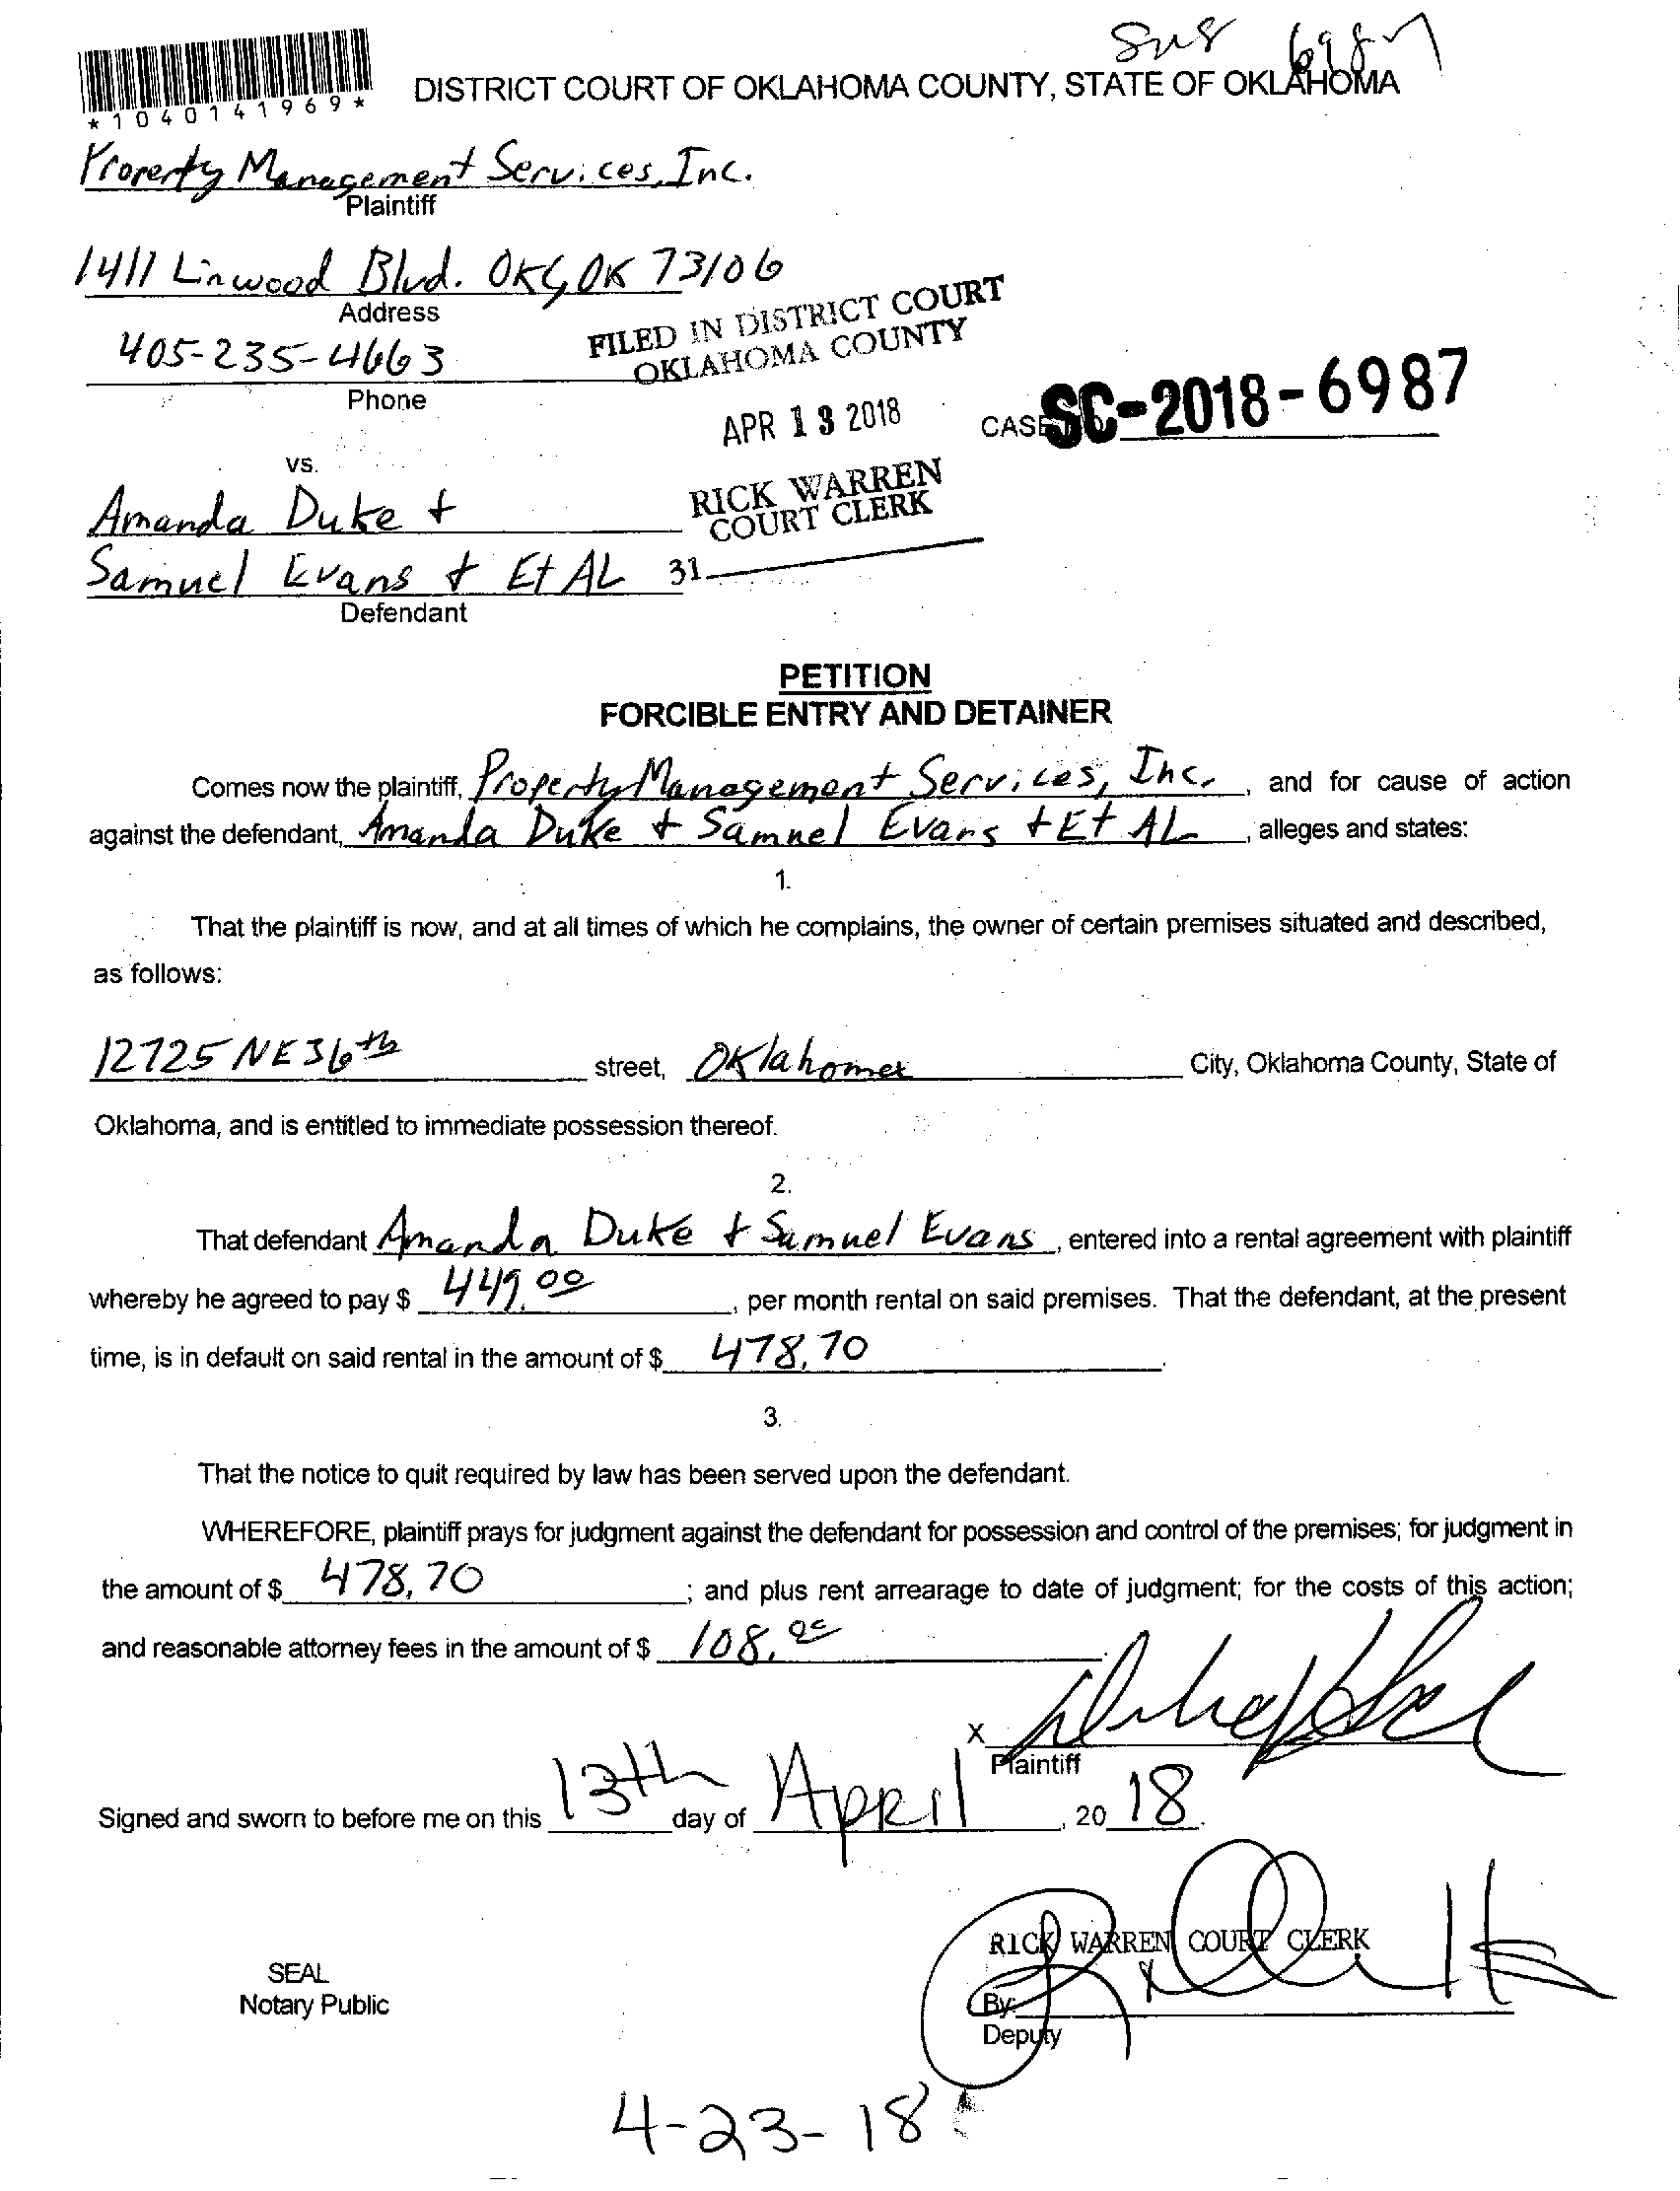 6987
DISTRICT COURT OF OKLAHOMA COUNTY, STATE OF OKLAHOMA
*1040141969*
Property Management Services, Inc.
Plaintiff
1411 Linwood Blvd. OKC, OK 73106
Address
405-235-4663
Phone
FILED IN DISTRICT COURT
OKLAHOMA COUNTY
APR 13 2018
RICK WARREN
COURT CLERK
31
CASE SC-2018-6987
vs.
Amanda Duke +
Samuel Evans + Et AL
Defendant
PETITION
FORCIBLE ENTRY AND DETAINER
Comes now the plaintiff, Property Management Services, Inc. , and for cause of action
against the defendant, Amanda Duke + Samuel Evans + Et AL , alleges and states:
1.
That the plaintiff is now, and at all times of which he complains, the owner of certain premises situated and described,
as follows:
12725 NE 36th street, Oklahoma City, Oklahoma County, State of
Oklahoma, and is entitled to immediate possession thereof.
2.
That defendant Amanda Duke + Samuel Evans , entered into a rental agreement with plaintiff
whereby he agreed to pay $ 449.00 , per month rental on said premises. That the defendant, at the present
time, is in default on said rental in the amount of $ 478.70 .
3.
That the notice to quit required by law has been served upon the defendant.
WHEREFORE, plaintiff prays for judgment against the defendant for possession and control of the premises; for judgment in
the amount of $ 478.70 ; and plus rent arrearage to date of judgment; for the costs of this action;
and reasonable attorney fees in the amount of $ 108.00 .
X
Plaintiff
Signed and sworn to before me on this 13th day of April , 20 18 .
RICK WARREN COURT CLERK
SEAL
Notary Public
By:
Deputy
4-23-18